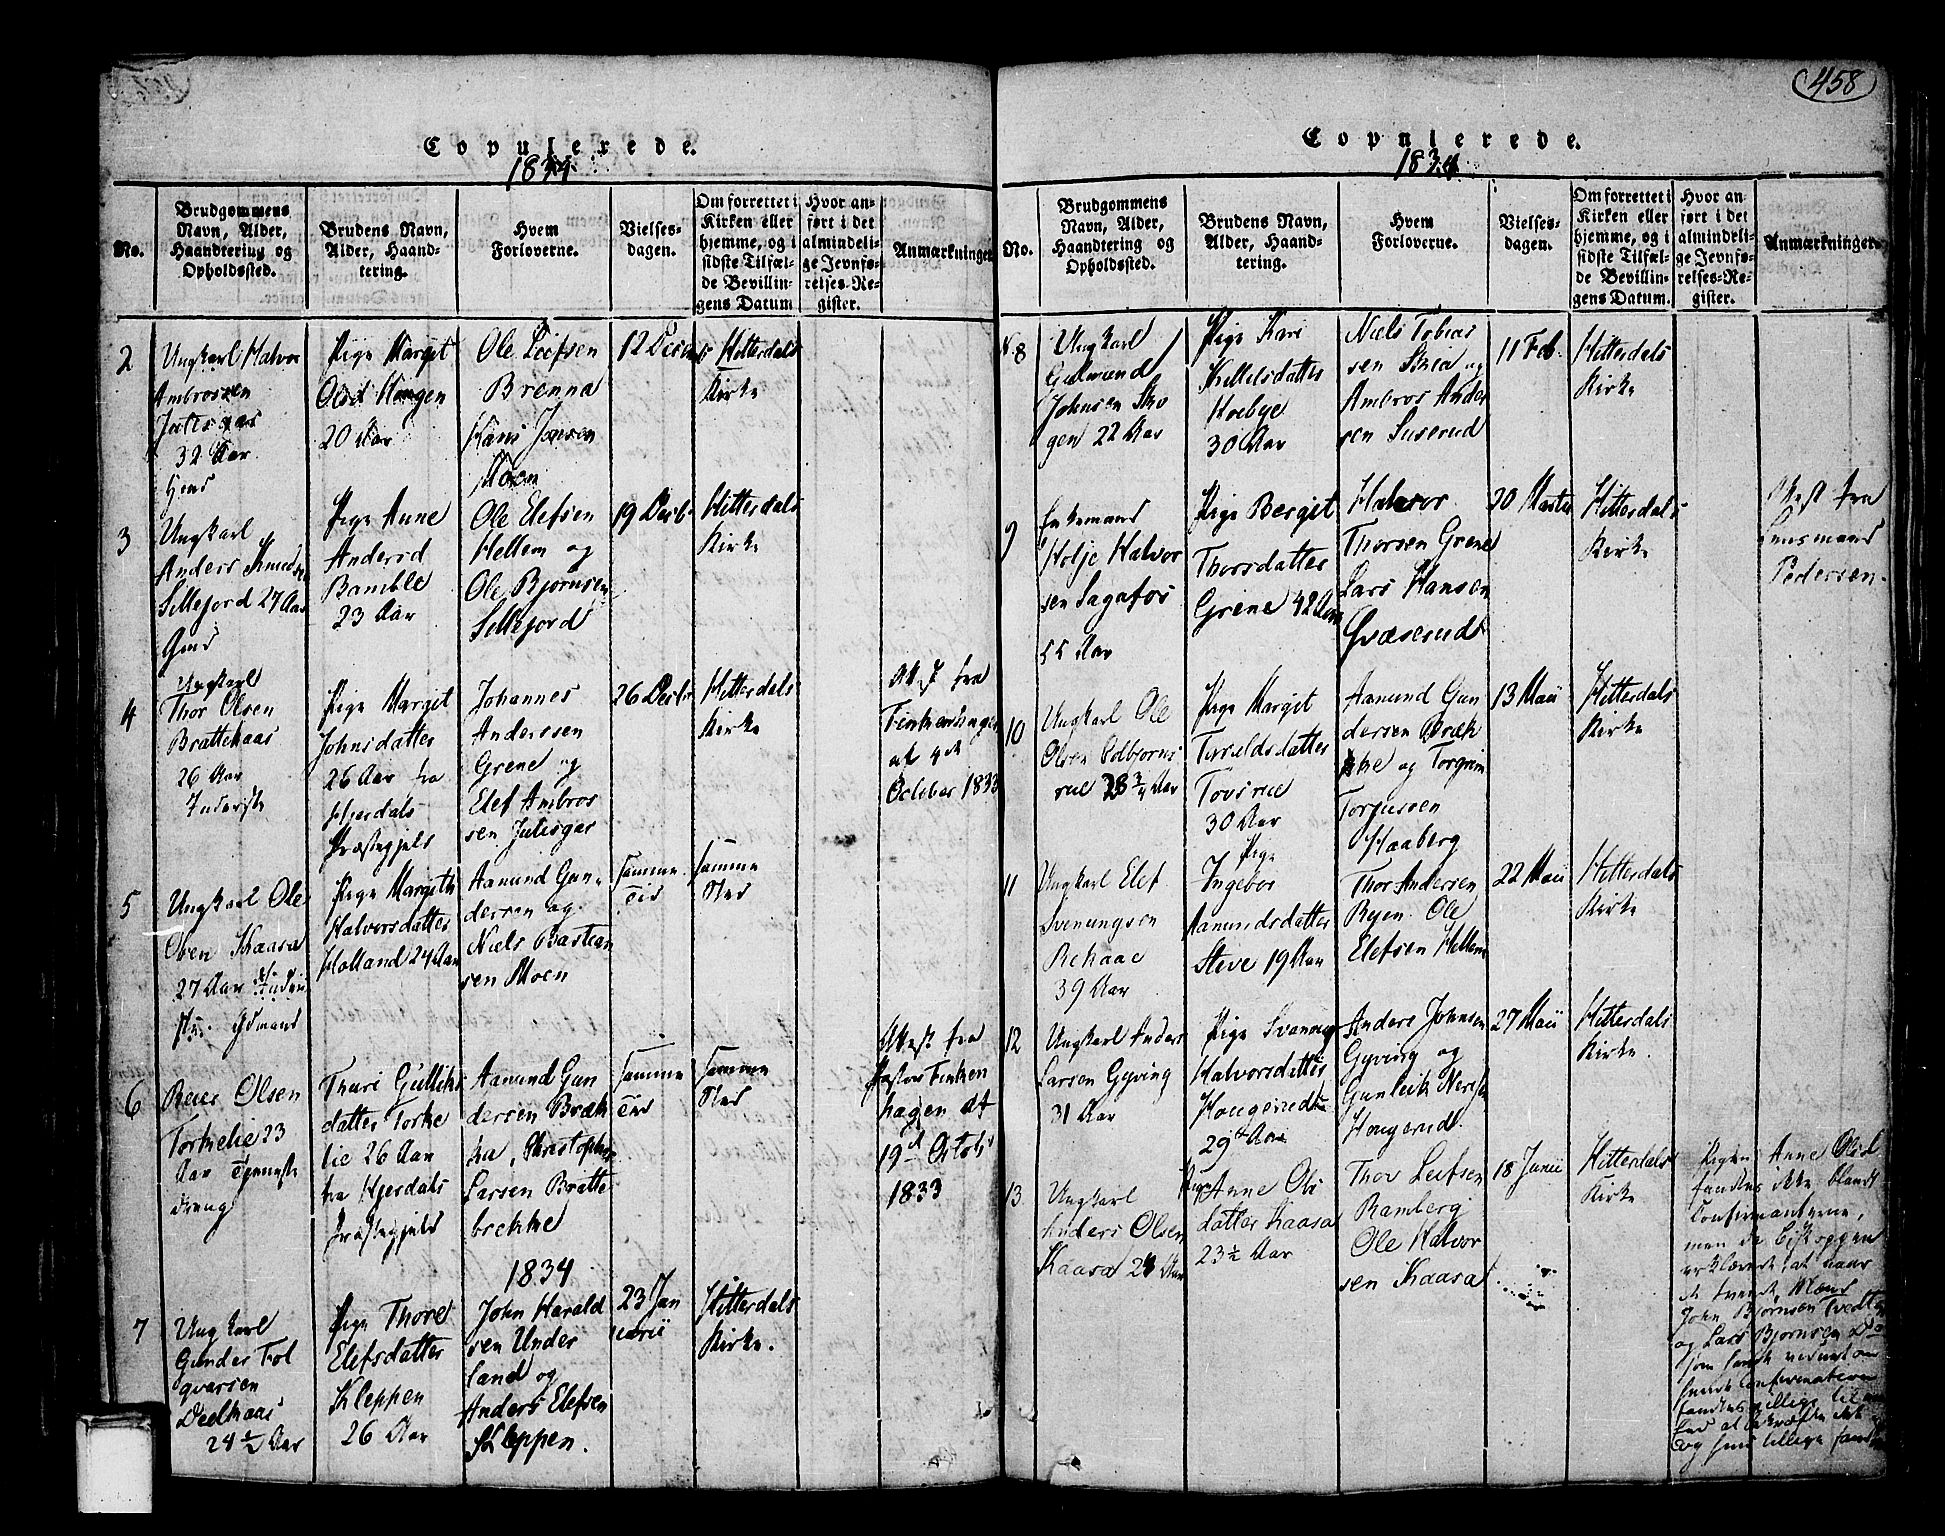 458
Copulerede.
1834
No.
Brudgommens
Navn, Alder,
Haandtering og
Opholdssted.
Brudens Navn,
Alder, Haand-
tering.
Hvem
Forloverne.
Vielses-
dagen.
Om forrettet i
Kirken eller
hjemme, og i
sidste Tilfæl-
de Bevillin-
gens Datum
Hvor an-
ført i det
almindeli-
ge Jevnfø-
relses-Re-
gister.
Anmærkninger
2
Ungkarl Halvor
Ambrosen
Julisgas
32 Aar
Pige Margit
Olsd Haugen
20 Aar
Ole Leefsen
Brenna
Hans Jonsen
Moen
12 Decbr
Hitterdals
Kirke
3
Ungkarl
Anders Knudsen
Sillejord 27 Aar
Pige Anne
Andersd
Bamble
23 Aar
Ole Elefsen
Hellem og
Ole Bjørnsen
Sillejord
19 Decbr
Hitterdals
Kirke
4
Ungkarl
Thor Olsen
Brattekaas
26 Aar
Inderste
Pige Margit
Johnsdatter
26 Aar fra
Hjerdals
Præstegjels
Johannes
Anderssen
Grene og
Elef Ambros
sen Julisgas
26 Decbr
Hitterdals
Kirke
Attest fra
Finkenhagen
af 9de
October 1833
5
Ungkarl Ole
Olsen Kaasa
27 Aar
Pige Margith
Halvorsdatter
Holland 24 Aar
Aamund Gun-
dersen og
Niels Bastian
sen Moen
Samme
Tid
Samme
Sted
6
Reier Olsen
Torkelie 23
Aar Tjeneste
dreng
Thuri Gulliks
datter Torke
lie 26 Aar
fra Hjerdals
Præstegjels
Aamund Gun
dersen Bræk
ka, Christopher
Larsen Bratte
brekke
Samme
Tid
Samme
Sted
Attest fra
Pastor Finken
hagen af
19de Octob
1833
1834
7
Ungkarl
Gunder Fol
qvarsen
Deelkaas
24½ Aar
Pige Thore
Elefsdatter
Kleppen
26 Aar
John Harald
sen Under
land og
Anders Elefsen
Kleppen.
23 Jan
uarii
Hitterdals
Kirke.
Copulerede.
1834
No.
Brudgommens
Navn, Alder,
Haandtering og
Opholdssted.
Brudens Navn,
Alder, Haand-
tering.
Hvem
Forloverne.
Vielses-
dagen.
Om forrettet i
Kirken eller
hjemme, og i
sidste Tilfæl-
de Bevillin-
gens Datum.
Hvor an-
ført i det
almindeli-
ge Jevnfø-
relses-Re-
gister.
Anmærkninger
N. 8
Ungkarl
Gulmund
Johnsen Sko
gen 22 Aar
Pige Kari
Kittelsdatter
Hoebye
30 Aar
Niels Tobias
sen Skea og
Ambros Ander
sen Suserud
11 Feb.
Hitterdals
Kirke
9
Enkemand
Holje Halvor
sen Sagafos
55 Aar
Pige Bergit
Thorsdatter
Grene 42 Aar
Halvor
Thorsen Grene
Lars Hansen
Gvæserud
20 Martii
Hitterdals
Kirke
Attest fra
Lensmand
Pedersen.
10
Ungkarl Ole
Olsen Odbjorns
rue 23¾ Aar
Pige Margit
Taraldsdatter
Tovsrue
30 Aar
Aamund Gun
dersen Bræk
ke og Torgrim
Torjussen
Haaberg
13 Maii
Hitterdals
Kirke
11
Ungkarl Elef
Svenungsen
Rekaae
39 Aar
Pige
Ingebor
Aamundsdatter
Steve 19 Aar
Thor Andersen
Ryen. Ole
Elefsen Hellem
22 Maii
Hitterdals
Kirke
12
Ungkarl Anders
Larsen Gyving
31 Aar
Pige Svanaug
Halvorsdatter
Hougerud
29 Aar
Anders Johnsen
Gyving og
Gunleik Neriss
Hougerud.
27 Maii
Hitterdals
Kirke.
13.
Ungkarl
Anders Olsen
Kaasa 24 Aar
Pige Anne Ols
datter Kaasa
23½ Aar
Thor Leefsen
Ramberg
Ole Halvor
sen Kaasa
18 Junii
Hitterdals
Kirke
Pigen Anne Olsd
fandtes ikke blandt
Confirmanterne,
men da Biskoppen
erklærede at naar
de tvende Mænd
John Bjørnsen Tvedten
og Lars Bjørnsen